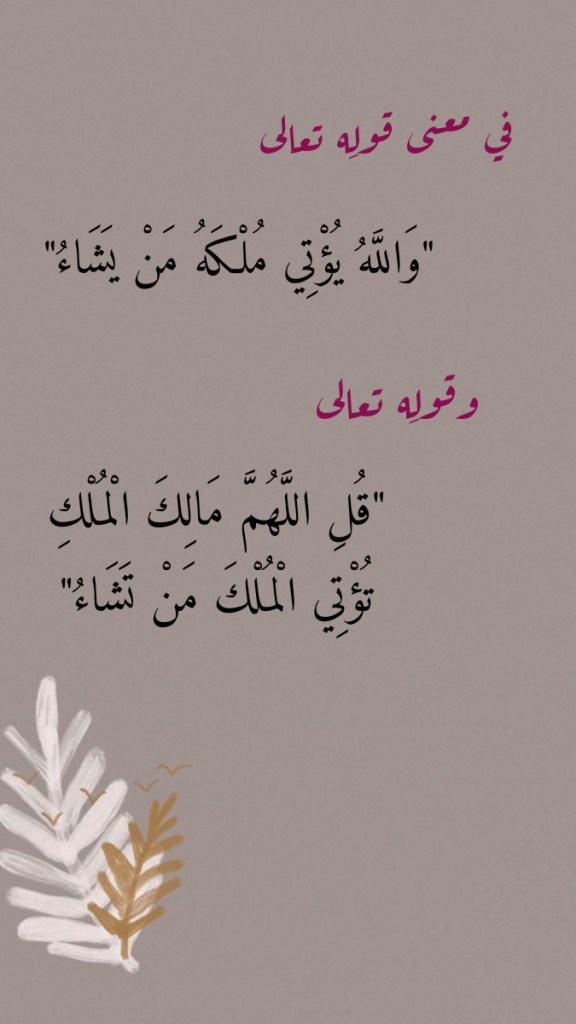 في معنى قولِه تعالى
"وَاللَّهُ يُؤْتِي مُلْكَهُ مَنْ يَشَاءُ"
وقولِه تعالى
"قُلِ اللَّهُمَّ مَالِكَ الْمُلْكِ
تُؤْتِي الْمُلْكَ مَنْ تَشَاءُ"